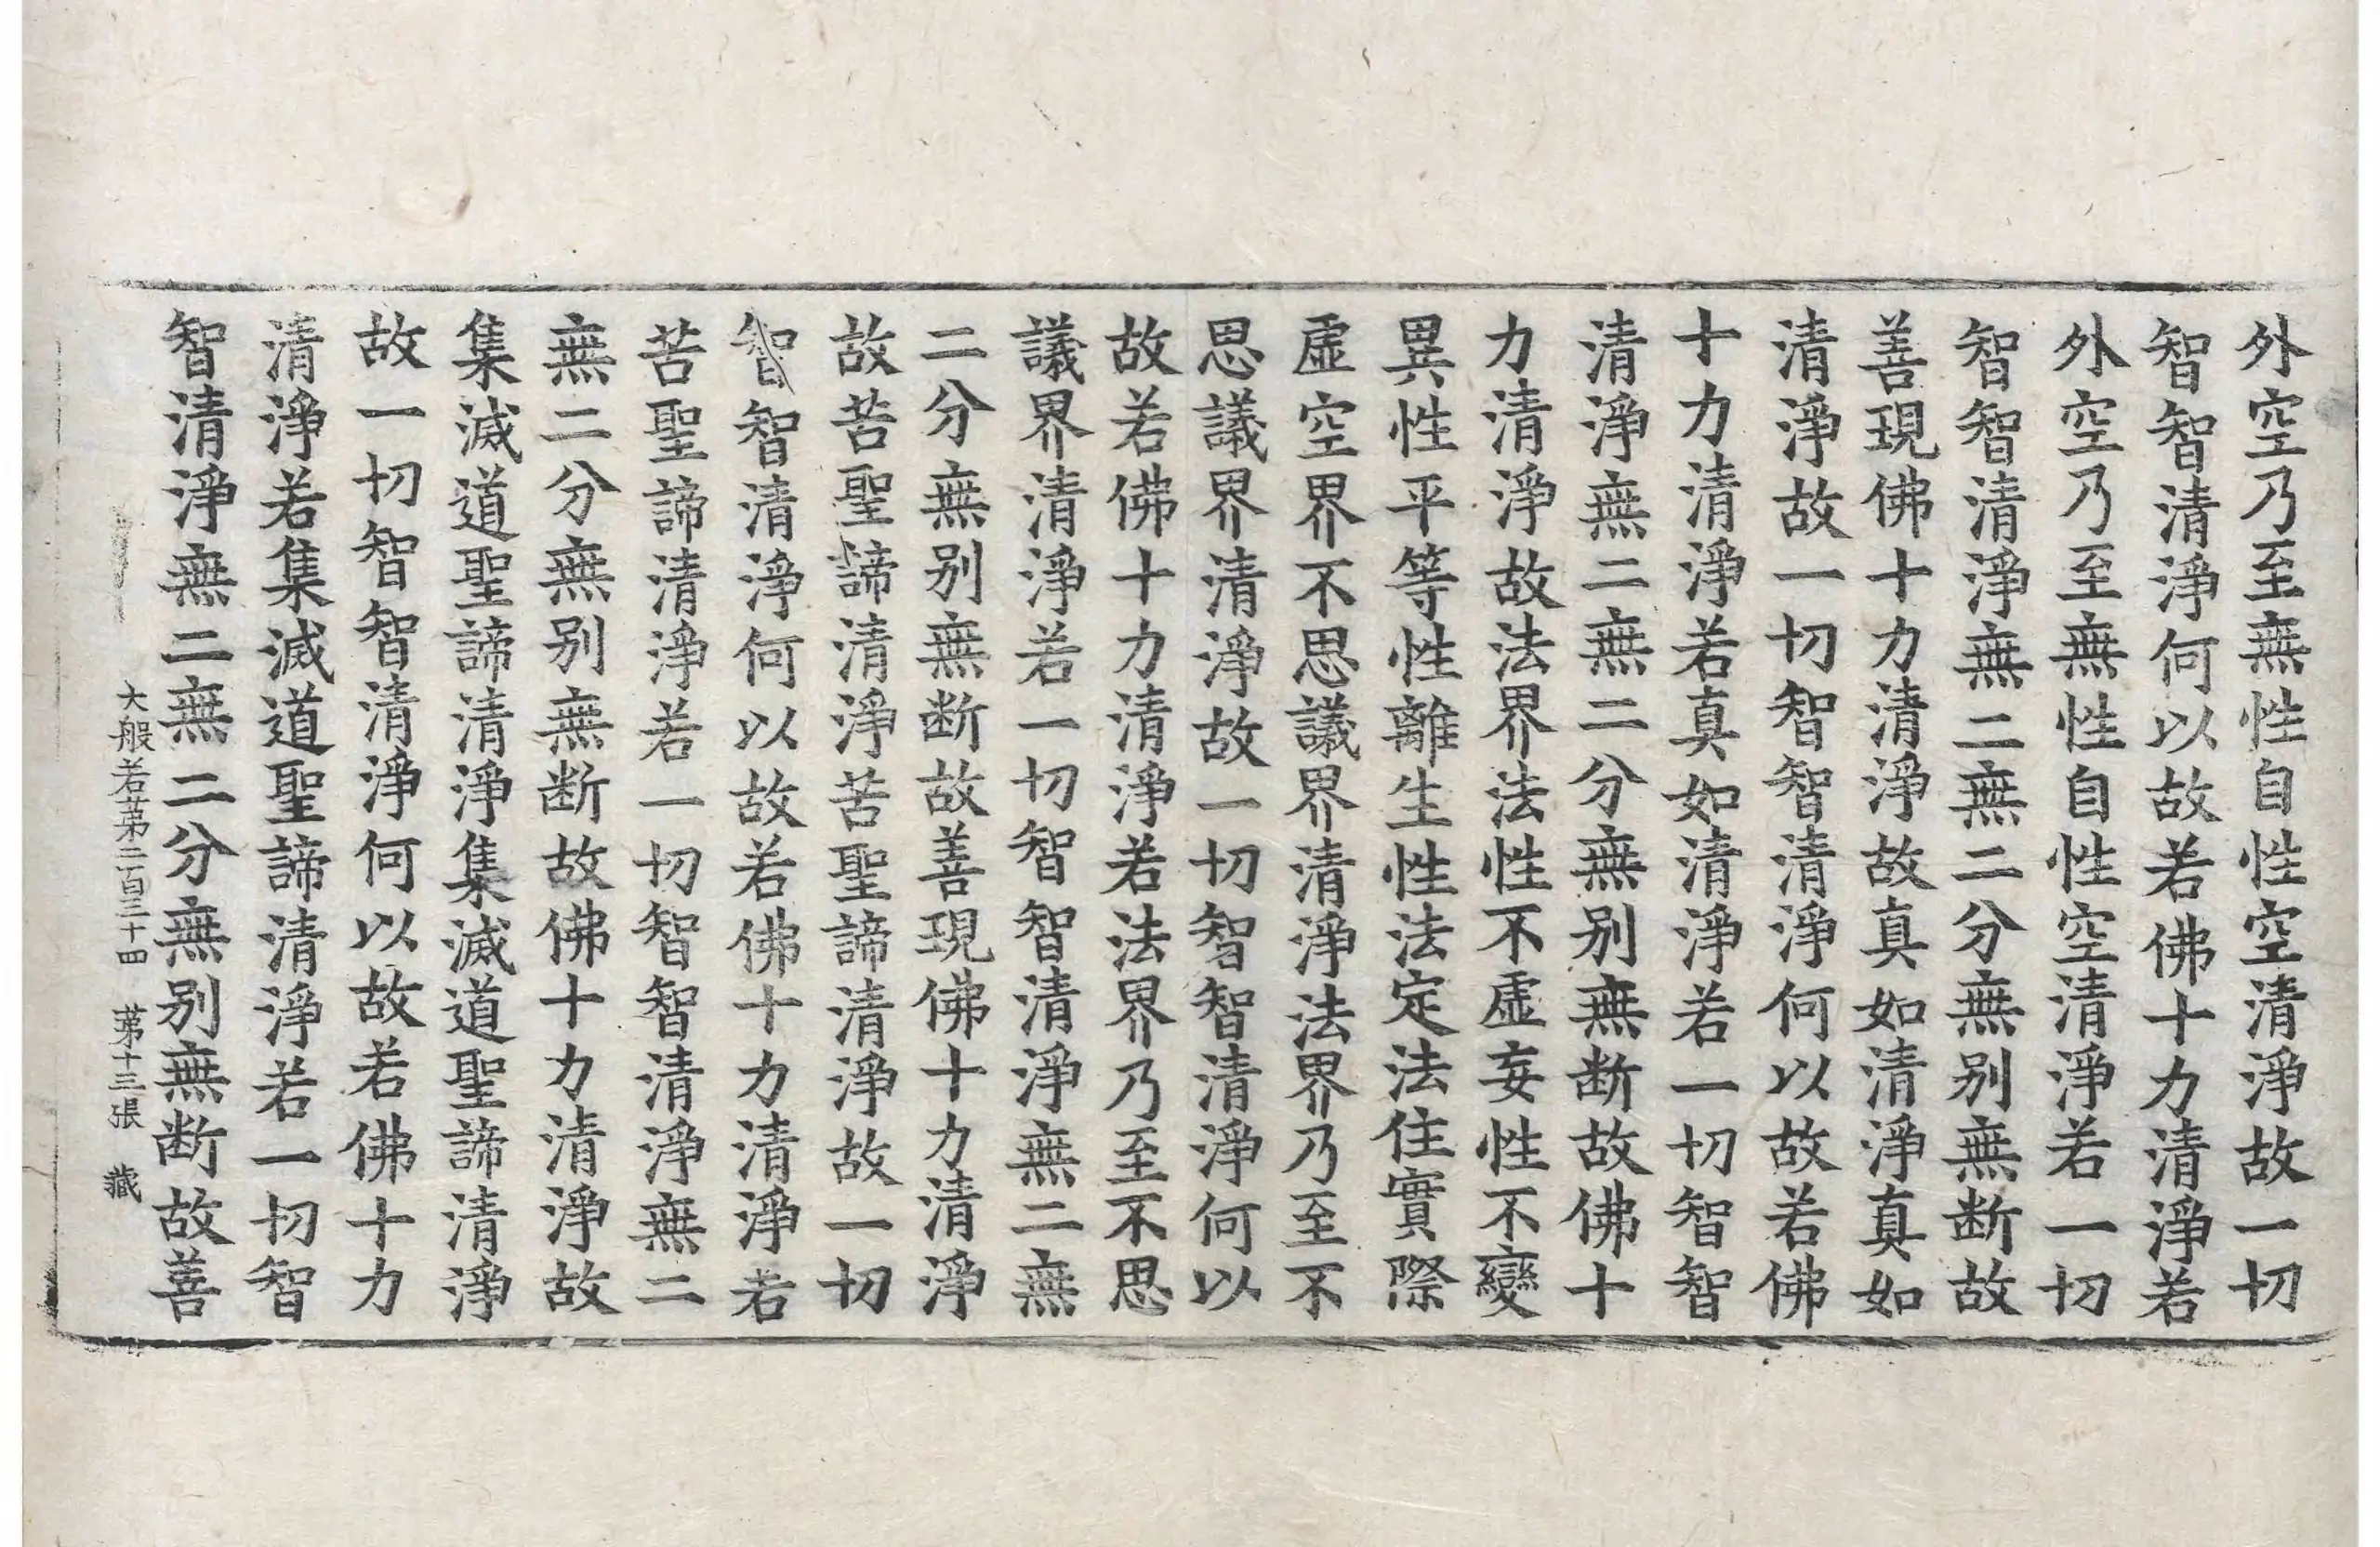 外空乃至無性自性空清淨故一切
智智清淨何以故若佛十力清淨若
外空乃至無性自性空清淨若一切
智智清淨無二無二分無別無断故
善現佛十力清淨故真如清淨真如
清淨故一切智智清淨何以故若佛
十力清淨若真如清淨若一切智智
清淨無二無二分無別無断故佛十
力清淨故法界法性不虛妄性不變
異性平等性離生性法定法住實際
虛空界不思議界清淨法界乃至不
思議界清淨故一切智智清淨何以
故若佛十力清淨若法界乃至不思
議界清淨若一切智智清淨無二無
二分無別無断故善現佛十力清淨
故苦聖諦清淨苦聖諦清淨故一切
智智清淨何以故若佛十力清淨若
苦聖諦清淨若一切智智清淨無二
無二分無別無断故佛十力清淨故
集滅道聖諦清淨集滅道聖諦清淨
故一切智智清淨何以故若佛十力
清淨若集滅道聖諦清淨若一切智
智清淨無二無二分無別無断故善
大般若苐二百三十四 苐十三張 藏